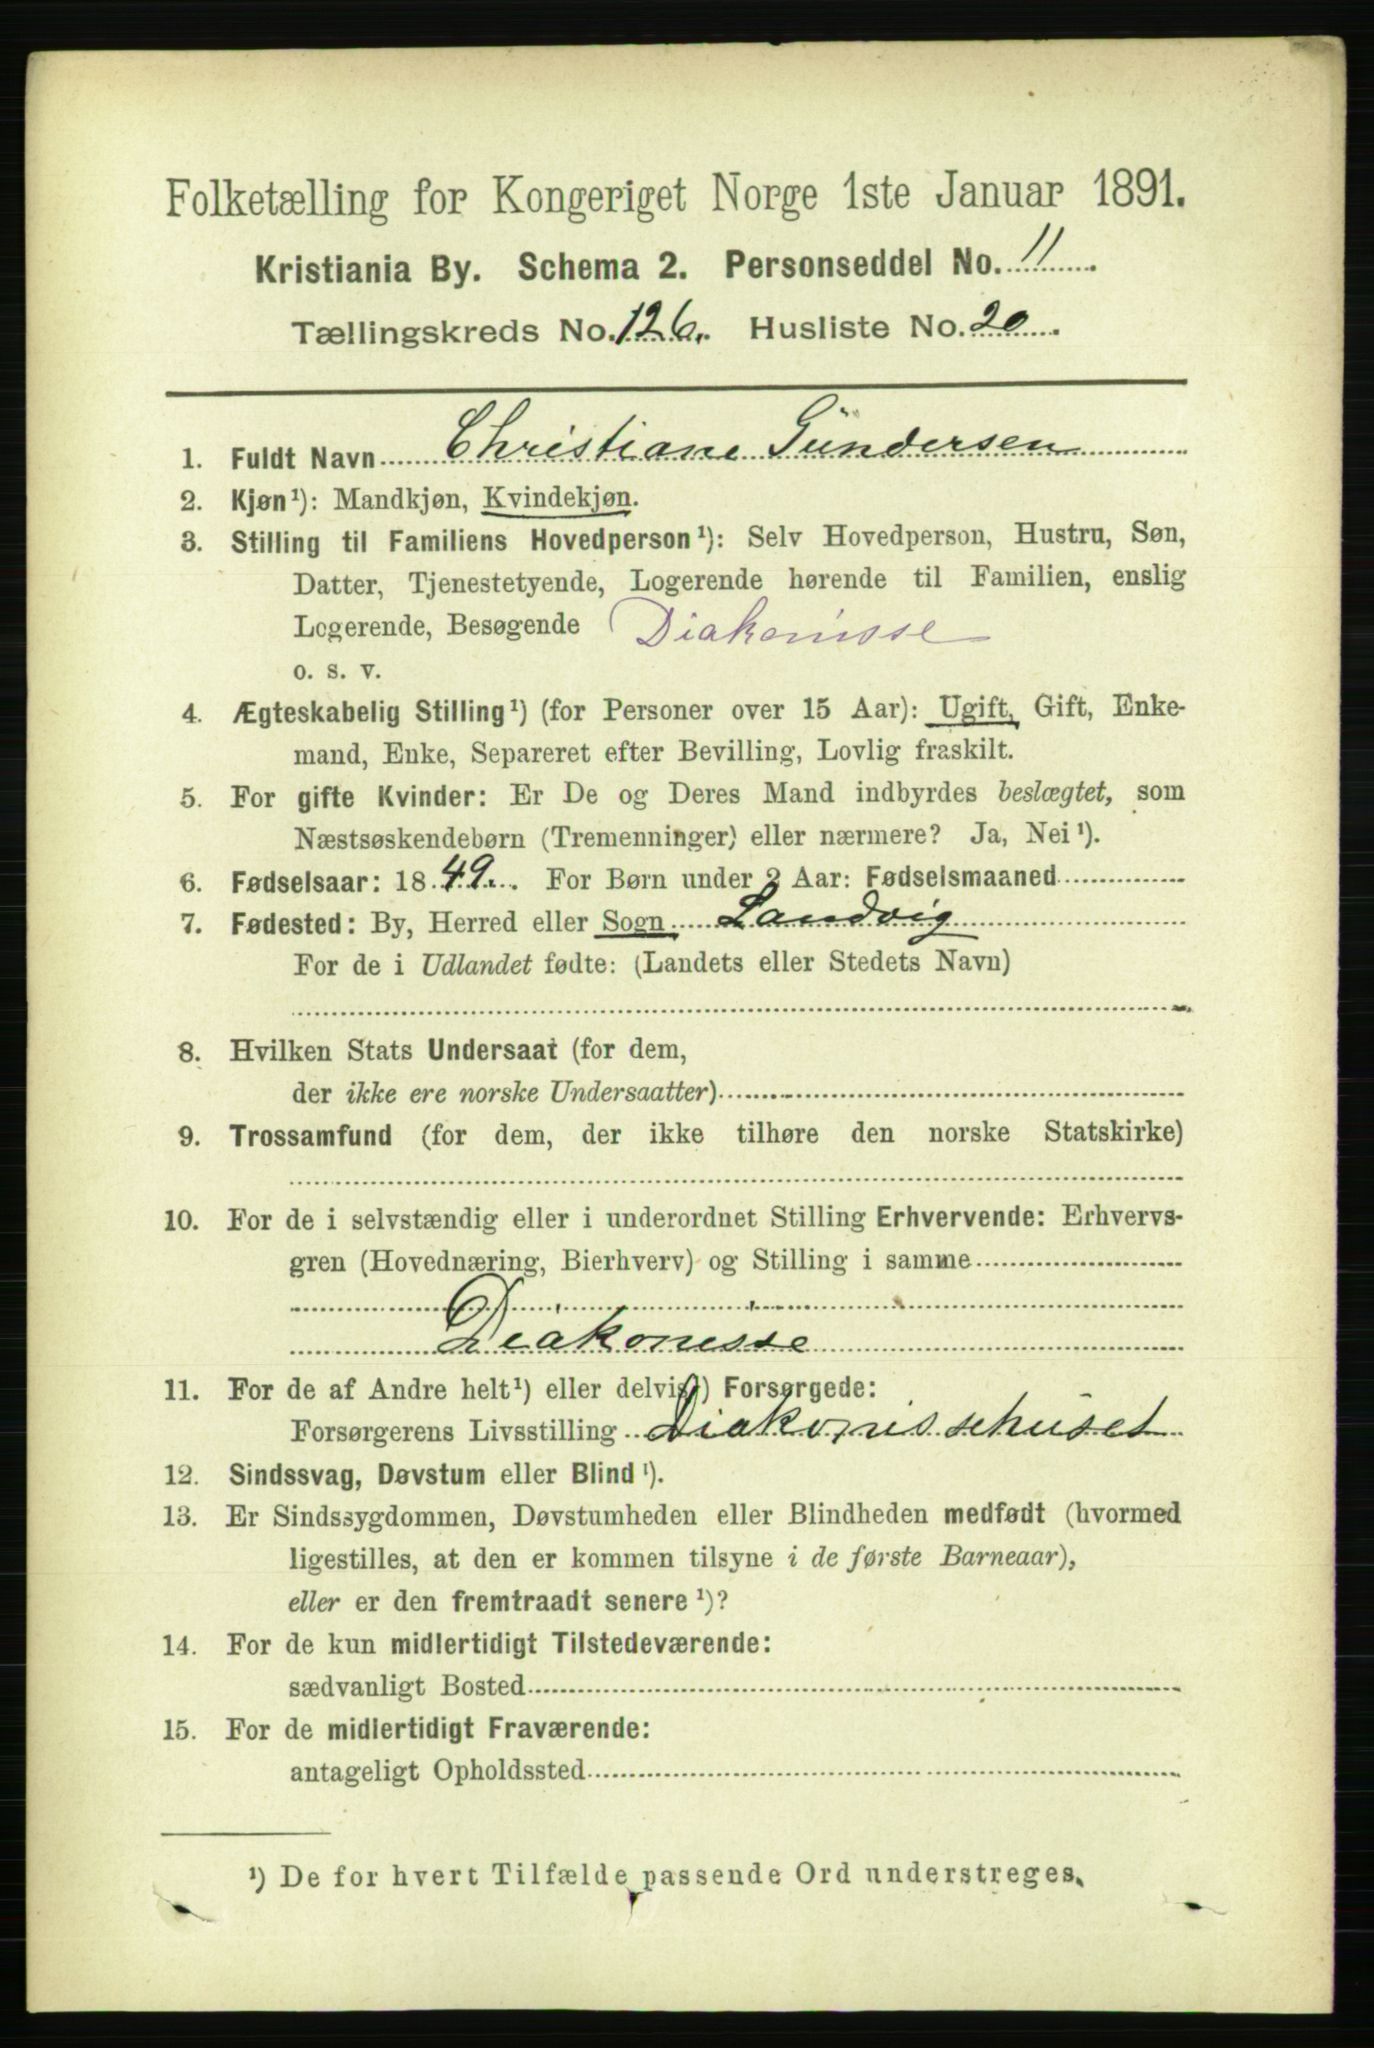 Folketælling for Kongeriget Norge 1ste Januar 1891.
Kristiania By. Schema 2. Personseddel No. 11
Tællingskreds No. 126. Husliste No. 20
1. Fuldt Navn Christiane Gündersen
2. Kjøn¹): Mandkjøn, Kvindekjøn.
3. Stilling til Familiens Hovedperson¹): Selv Hovedperson, Hustru, Søn,
Datter, Tjenestetyende, Logerende hørende til Familien, enslig
Logerende, Besøgende Diakonisse
o. s. v.
4. Ægteskabelig Stilling¹) (for Personer over 15 Aar): Ugift, Gift, Enke-
mand, Enke, Separeret efter Bevilling, Lovlig fraskilt.
5. For gifte Kvinder: Er De og Deres Mand indbyrdes beslægtet, som
Næstsøskendebørn (Tremenninger) eller nærmere? Ja, Nei¹).
6. Fødselsaar: 1849. For Børn under 2 Aar: Fødselsmaaned
7. Fødested: By, Herred eller Sogn Landvig
For de i Udlandet fødte: (Landets eller Stedets Navn)
8. Hvilken Stats Undersaat (for dem,
der ikke ere norske Undersaatter)
9. Trossamfund (for dem, der ikke tilhøre den norske Statskirke)
10. For de i selvstændig eller i underordnet Stilling Erhvervende: Erhvervs-
gren (Hovednæring, Bierhverv) og Stilling i samme
Diakonisse
11. For de af Andre helt¹) eller delvis¹) Forsørgede:
Forsørgerens Livsstilling Diakonissehuset
12. Sindssvag, Døvstum eller Blind¹).
13. Er Sindssygdommen, Døvstumheden eller Blindheden medfødt (hvormed
ligestilles, at den er kommen tilsyne i de første Barneaar),
eller er den fremtraadt senere¹)?
14. For de kun midlertidigt Tilstedeværende:
sædvanligt Bosted
15. For de midlertidigt Fraværende:
antageligt Opholdssted
¹) De for hvert Tilfælde passende Ord understreges.